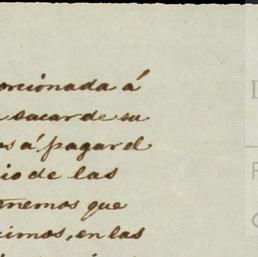 orcionada á
sacar de su
os á pagar el
io de las
nemos que
cimos, en las